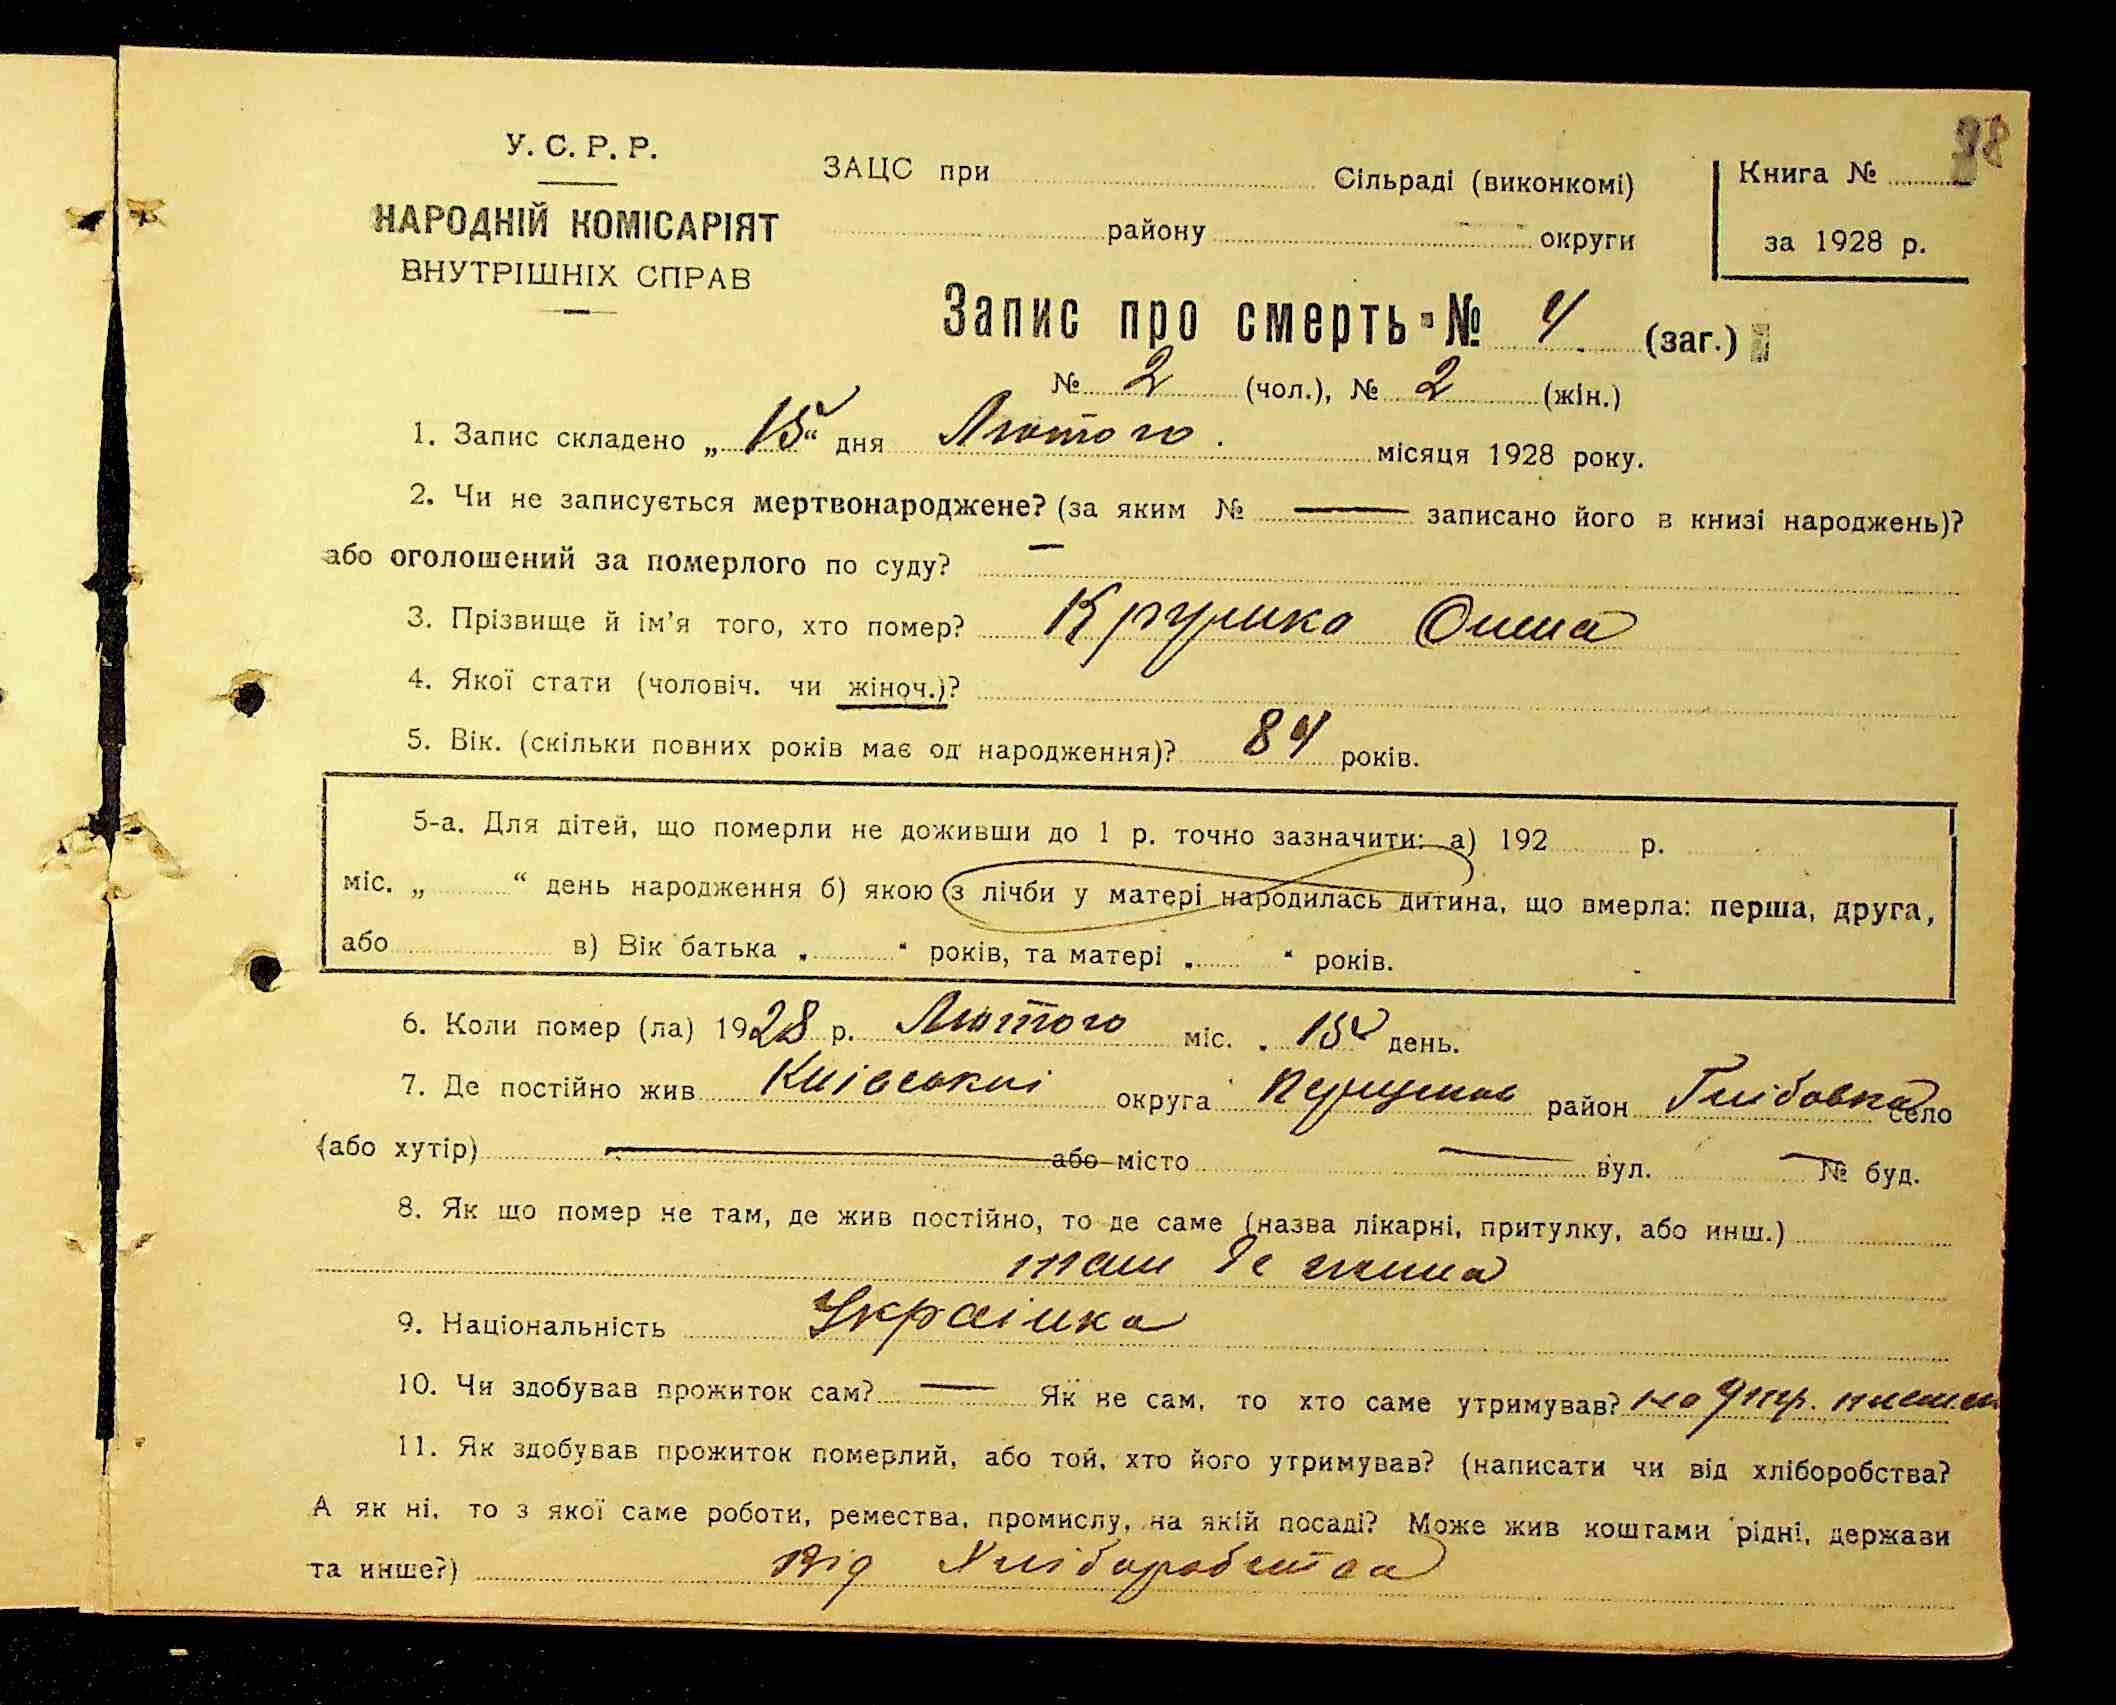 У. С. Р. Р.
НАРОДНІЙ КОМІСАРІЯТ
ВНУТРІШНІХ СПРАВ
ЗАЦС при Сільраді (виконкомі)
району округи
Книга №
за 1928 р.
Запис про смерть № 4 (заг.)
№ 2 (чол.), № 2 (жін.)
1. Запис складено „ 15 “ дня Лютого. місяця 1928 року.
2. Чи не записується мертвонароджене? (за яким № — записано його в книзі народжень)?
або оголошений за померлого по суду? —
3. Прізвище й ім'я того, хто помер?
4. Якої стати (чоловіч. чи жіноч.)?
5. Вік. (скільки повних років має од народження)? 84 років.
5-а. Для дітей, що померли не доживши до 1 р. точно зазначити: а) 192 р.
міс. „ “ день народження б) якою з лічби у матері народилась дитина, що вмерла: перша, друга,
або в) Вік батька „ “ років, та матері „ “ років.
6. Коли помер (ла) 1928 р. Лютого міс. 15 день.
7. Де постійно жив Київської округа район Глібовка село
(або хутір) — або місто — вул. — № буд.
8. Як що помер не там, де жив постійно, то де саме (назва лікарні, притулку, або инш.)
там де жила
9. Національність Українка
10. Чи здобував прожиток сам? — Як не сам, то хто саме утримував? на утр.
11. Як здобував прожиток померлий, або той, хто його утримував? (написати чи від хліборобства?
А як ні, то з якої саме роботи, ремества, промислу, на якій посаді? Може жив коштами рідні, держави
та инше?) Від Хліборобства